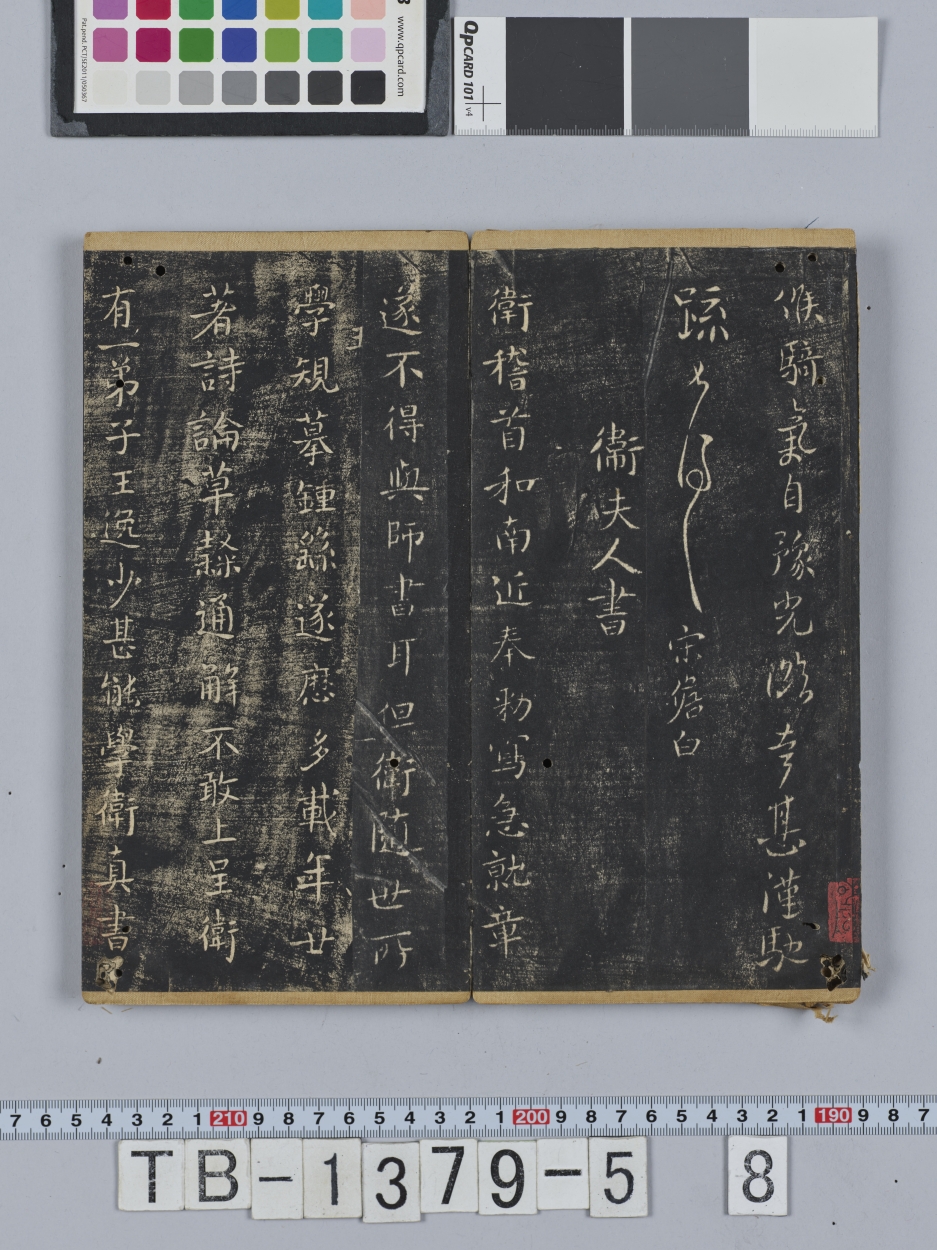 候騎氣自豫光
甚謹馳
疏
宋儋白
衛夫人書
衛稽首和南近奉勑寫急就章
遂不得與師書耳但衛隨世所
學規摹鍾繇遂歷多載年廿
著詩論草隸通解不敢上呈衛
有一弟子王逸少甚能學衛真書
Pat.pend. PCT/SE2011/050367
www.qpcard.com
QPCARD 101 v4
7 6 5 4 3 2 1 210 9 8 7 6 5 4 3 2 1 200 9 8 7 6 5 4 3 2 1 190 9 8 7
TB-1379-5 8